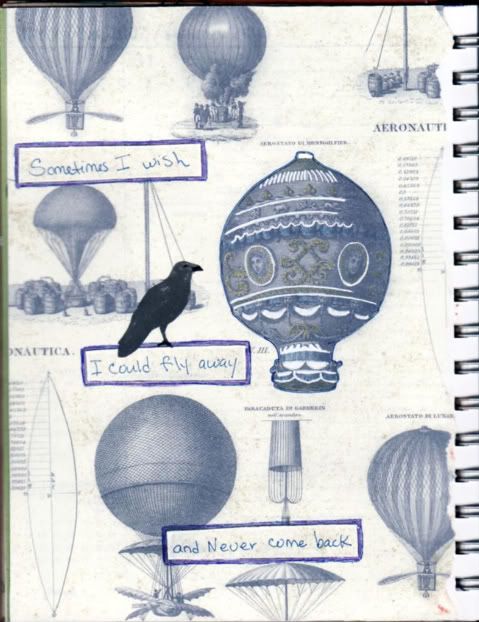 AERONAUTI
AEROSTATO DI MONGOLFIER.
Sometimes I wish
ONAUTICA.
I could fly away
V. III.
PARACADUTA DI GARNERIN
AEROSTATO DI LUNAR
and Never come back